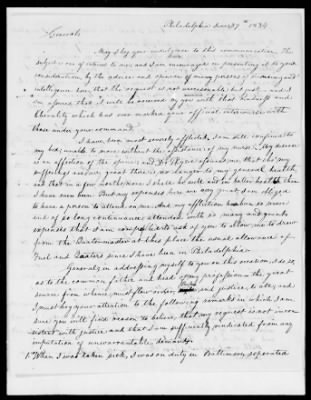 Philadelphia June 27th 1834
General:
May I beg your indulgence to this communication. The
subject is one of interest to me, and I am encouraged in presenting it to your
consideration, by the advice and opinion of many persons of standing and
intelligence here, that the request is not unreasonable but just, and I
am assured that it will be received by you with that kindness and
liberality which has ever marked your official intercourse with
those under your command.
I have been most severely afflicted. I am still confined to
my bed, unable to move without the assistance of my nurse. My disease
is an affection of the spine, and Dr. assures me, that tho' my
sufferings are very great there is no danger to my general health,
and that in a few months more I shall be well and in better health than
I have ever been. But my expenses here are very great, I am obliged
to have a person to attend on me. And my affliction has been so severe
and of so long continuance attended with so many and great
expenses that I am compelled to ask of you to allow me to draw
from the Quarter master at this place the usual allowance of
Fuel and Quarters since I have been in Philadelphia.
General, in addressing myself to you on this occasion, I do so,
as to the common father and head of my profession & the great
source from whence must flow order, and justice, to all; and
I must beg your attention to the following remarks in which I am
sure you will find reason to believe, that my request is not incon
sistent with justice and that I am sufficiently vindicated from any
imputation of unwarrantable demand.
1st When I was taken sick, I was on duty in Baltimore, separated